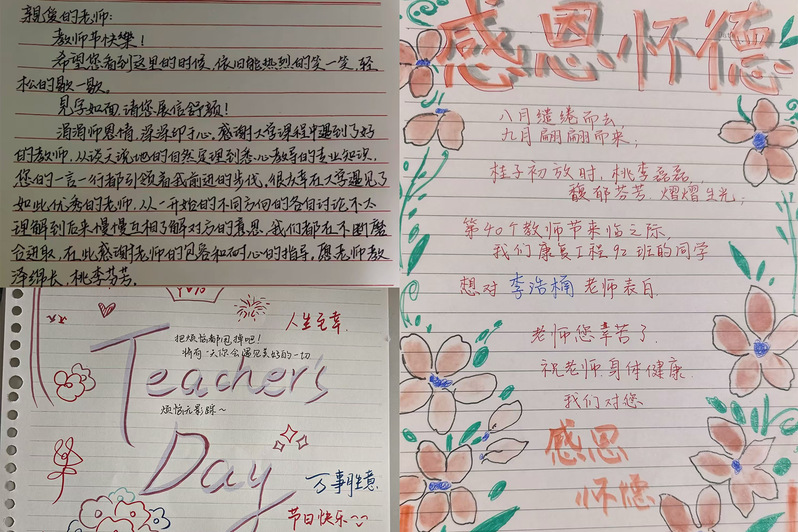 親愛的老师:
教师节快樂!
希望您看到这里的时候,依旧能热烈的笑一笑,轻
松的歇一歇。
见字如面,请您展信舒颜!
涓涓师恩情,深深印于心,感谢大学课程中遇到了好
的教师,从谈天说地的自然定理到悉心教导的专业知识,
您的一言一行都引领着我前进的步伐,很庆幸在大学遇见了
如此优秀的老师,从一开始的不同方向的各自讨论不太
理解到后来慢慢互相了解对方的意思,我们都在不断磨
合进取,在此感谢老师的包容和耐心的指导,愿老师教
泽绵长,桃李芬芳。
人生至幸
把烦恼都甩掉吧!
将有一天你会遇见美好的一切
Teacher's
烦恼无影踪~
Day
万事胜意
节日快乐~
感恩怀德
八月缱绻而去,
九月翩翩而来;
桂子初放时,桃李磊磊,
馥郁芬芳,熠熠生光;
第40个教师节来临之际,
我们康复工程92班的同学
想对 李浩楠 老师表白
老师您辛苦了
祝老师身体健康
我们对您
感恩
怀德